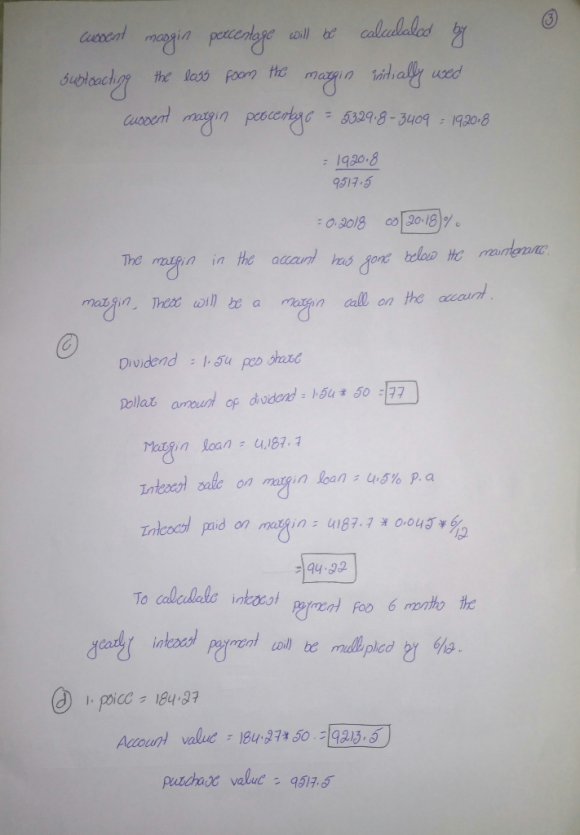 3
Current margin percentage will be calculated by
subtracting the loss from the margin initially used
Current margin percentage = 5329.8 - 3409 = 1920.8
= 1920.8
9517.5
= 0.2018 or 20.18 %.
The margin in the account has gone below the maintenance
margin. There will be a margin call on the account.
c
Dividend = 1.54 per share
Dollar amount of dividend = 1.54 * 50 = 77
Margin loan = 4,187.7
Interest rate on margin loan = 4.5% p.a
Interest paid on margin = 4187.7 * 0.045 * 6/12
= 94.22
To calculate interest payment for 6 months the
yearly interest payment will be multiplied by 6/12.
d 1. price = 184.27
Account value = 184.27 * 50 = 9213.5
Purchase value = 9517.5